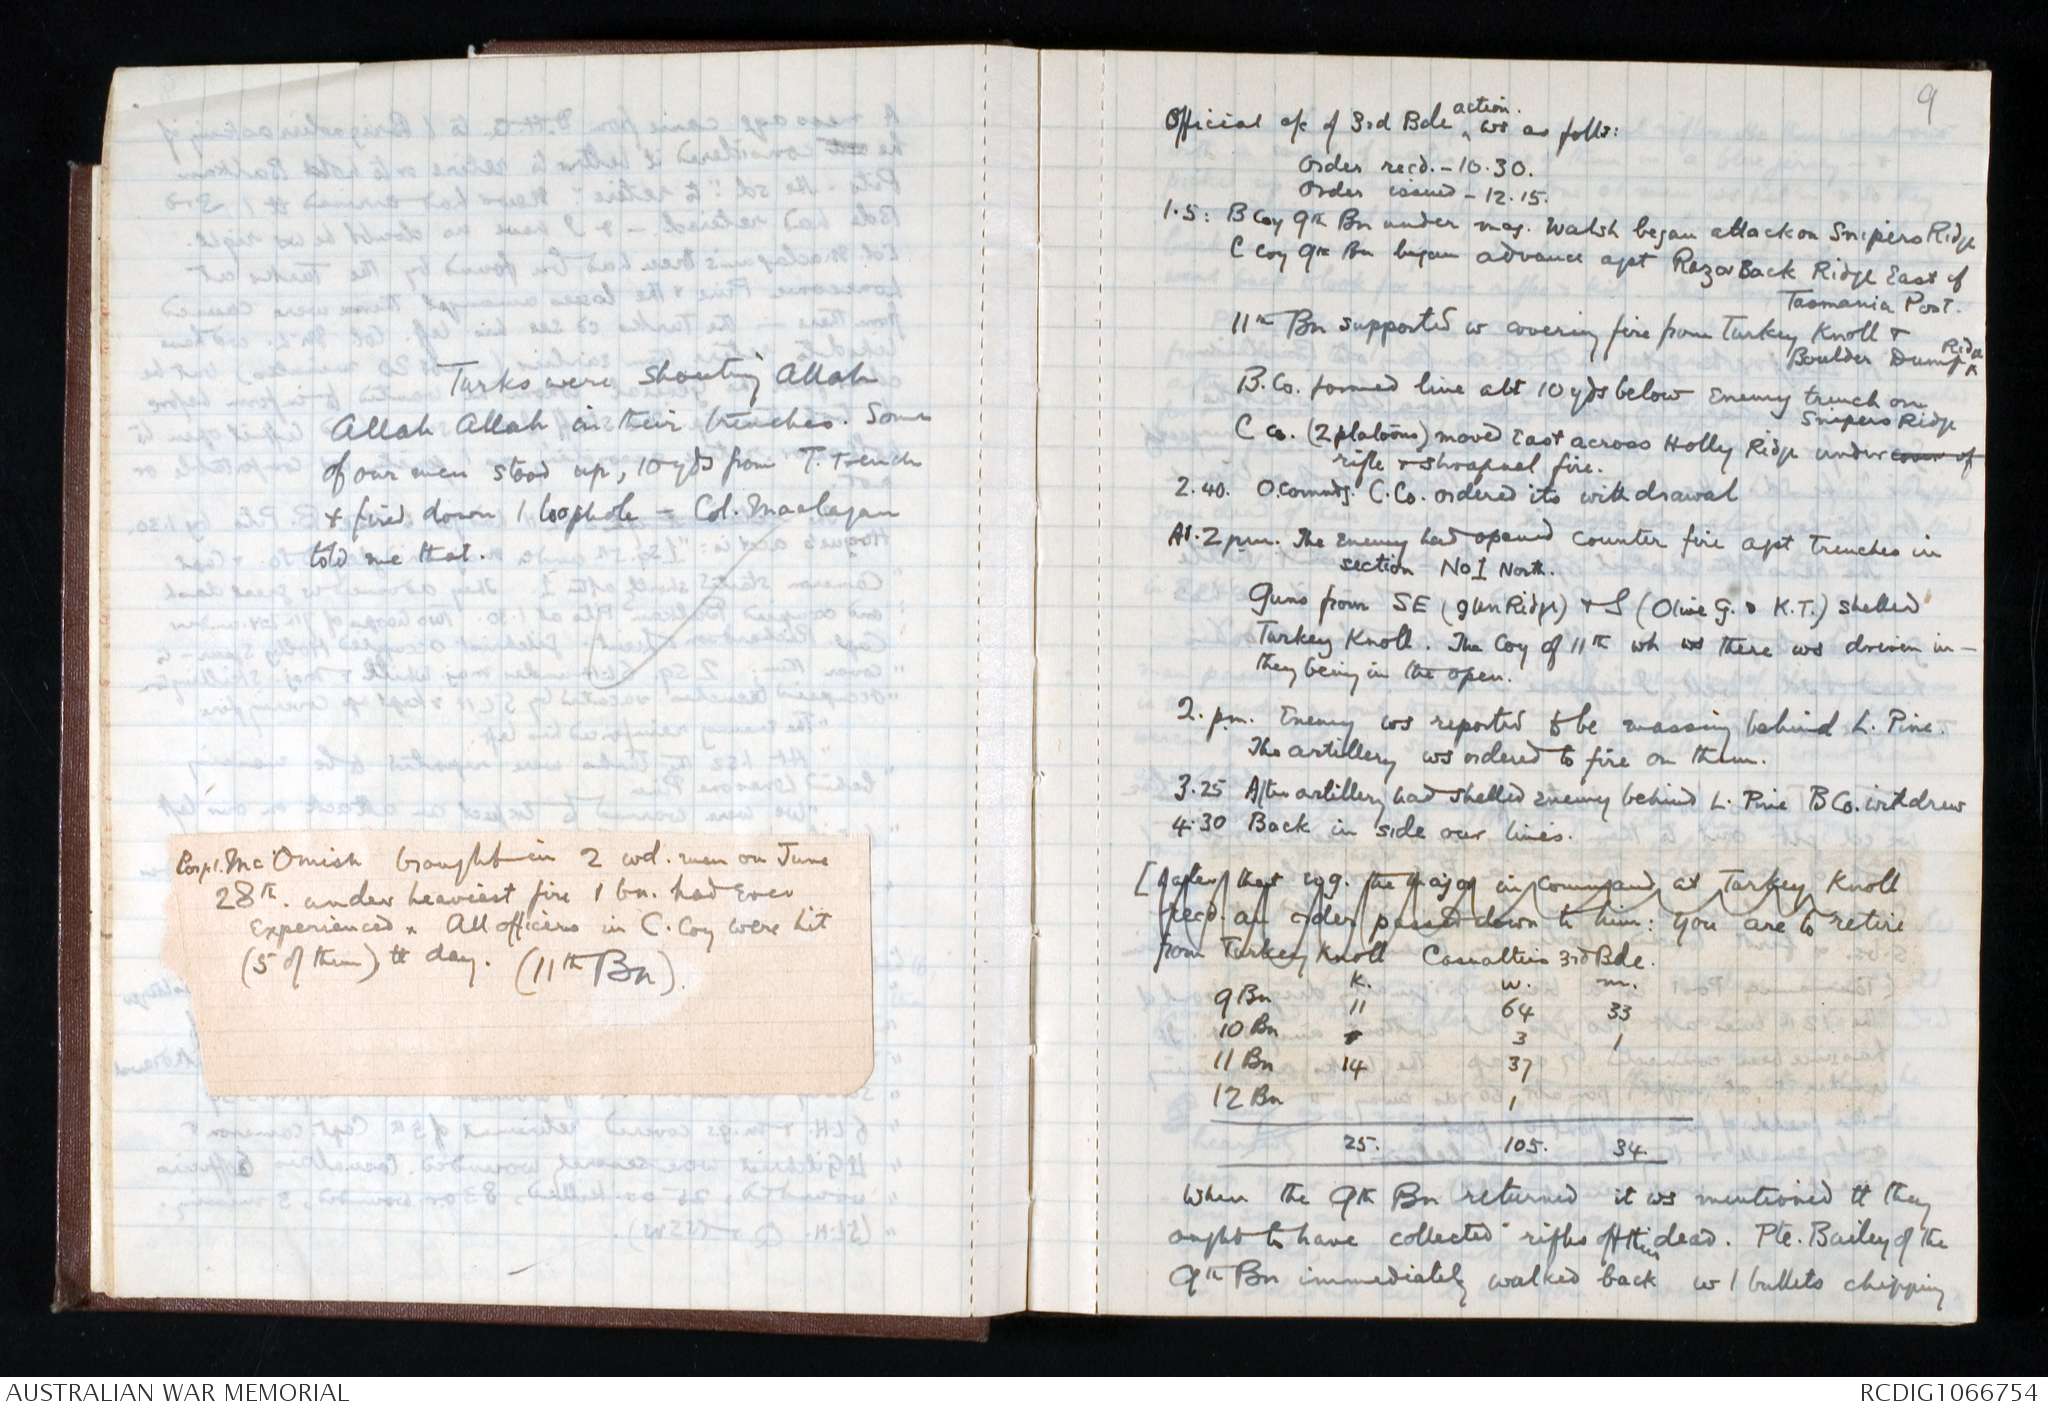 Turks were shouting Allah
Allah Allah in their trenches. Some
of our men stood up, 10 yds from T. trench
& fired down / loophole - Col. Maclagan
told me that.
Corpl. McOmish brought in 2 wd. men on June
28th. under heaviest fire / bn. had ever
experienced. All officers in C. Coy were hit
(5 of them) tt day. (11th Bn).
9
Official a/c of 3rd Bde action. ws as folls:
Order recd. - 10.30.
Order issued - 12.15.
1.5: B Coy 9th Bn under Maj. Walsh began attack on Snipers Ridge
C Coy 9th Bn began advance agst Razor Back Ridge East of
Tasmania Post.
11th Bn supported w covering fire from Turkey Knoll &
Boulder Dump Ridge
B.Co. formed line abt 10 yds below Enemy trench on
Snipers Ridge
C Co. (2 platoons) moved East across Holly Ridge under cover of
rifle & shrapnel fire.
2.40. O.Commdg. C.Co. ordered its withdrawal
At. 2 p.m. The Enemy had opened counter fire agst trenches in
section No I North.
Guns from SE (gun Ridge) & S (Olive G. & K.T.) shelled
Turkey Knoll. The Coy of 11th wh ws there ws driven in -
they being in the open.
2. p.m. Enemy ws reported to be massing behind L. Pine.
The artillery ws ordered to fire on them.
3.25 After artillery had shelled Enemy behind L. Pine B Co. withdrew
4.30 Back in side our lines.
[ after that the Major in command at Turkey Knoll
recd. an order passed down to him: you are to retire
from Turkey Knoll Casualties 3rd Bde.
K. w. m.
9 Bn 11 64 33
10 Bn 3 1
11 Bn 14 37
12 Bn 1
25. 105. 34.
When the 9th Bn returned it ws mentioned tt they
ought to have collected rifles off their dead. Pte. Bailey of the
9th Bn immediately walked back w / bullets chipping
AUSTRALIAN WAR MEMORIAL
RCDIG1066754